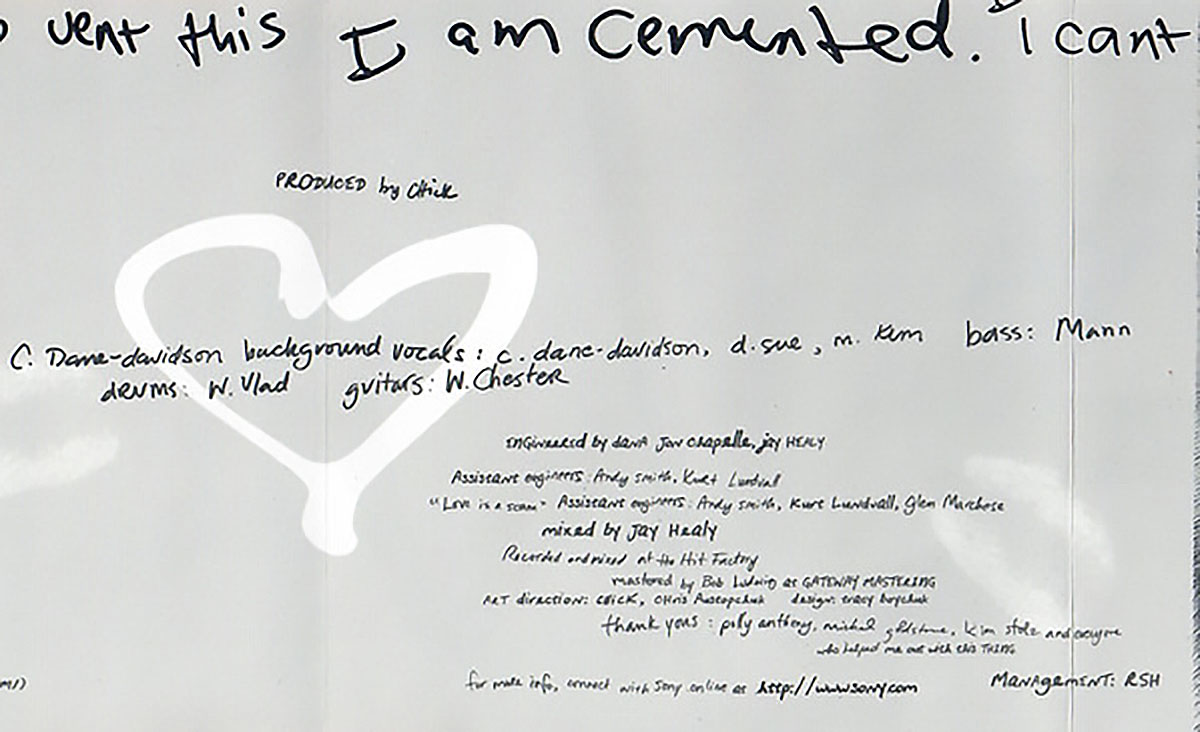 vent this I am cemented. I cant
PRODUCED by Chick
C. Dane-davidson background vocals: c. dane-davidson, d. sue, m. kim bass: Mann
drums: W. Vlad guitars: W. Chester
Engineered by dana Jon Chapelle, jay HEALY
Assistant engineers: Andy Smith, Kurt Lundvall
"Love is a scam" Assistant engineers: Andy Smith, Kurt Lundvall, Glen Marchese
mixed by Jay Healy
Recorded and mixed at the Hit Factory
mastered by Bob Ludwig at GATEWAY MASTERING
ART direction: CHICK, Chris Austopchuk design: tracy boychuk
thank yous: polly anthony, michael goldstone, kim stolz and everyone
who helped me out with this THING
for more info, connect with Sony online at http://www.sony.com
MANAGEMENT: RSH